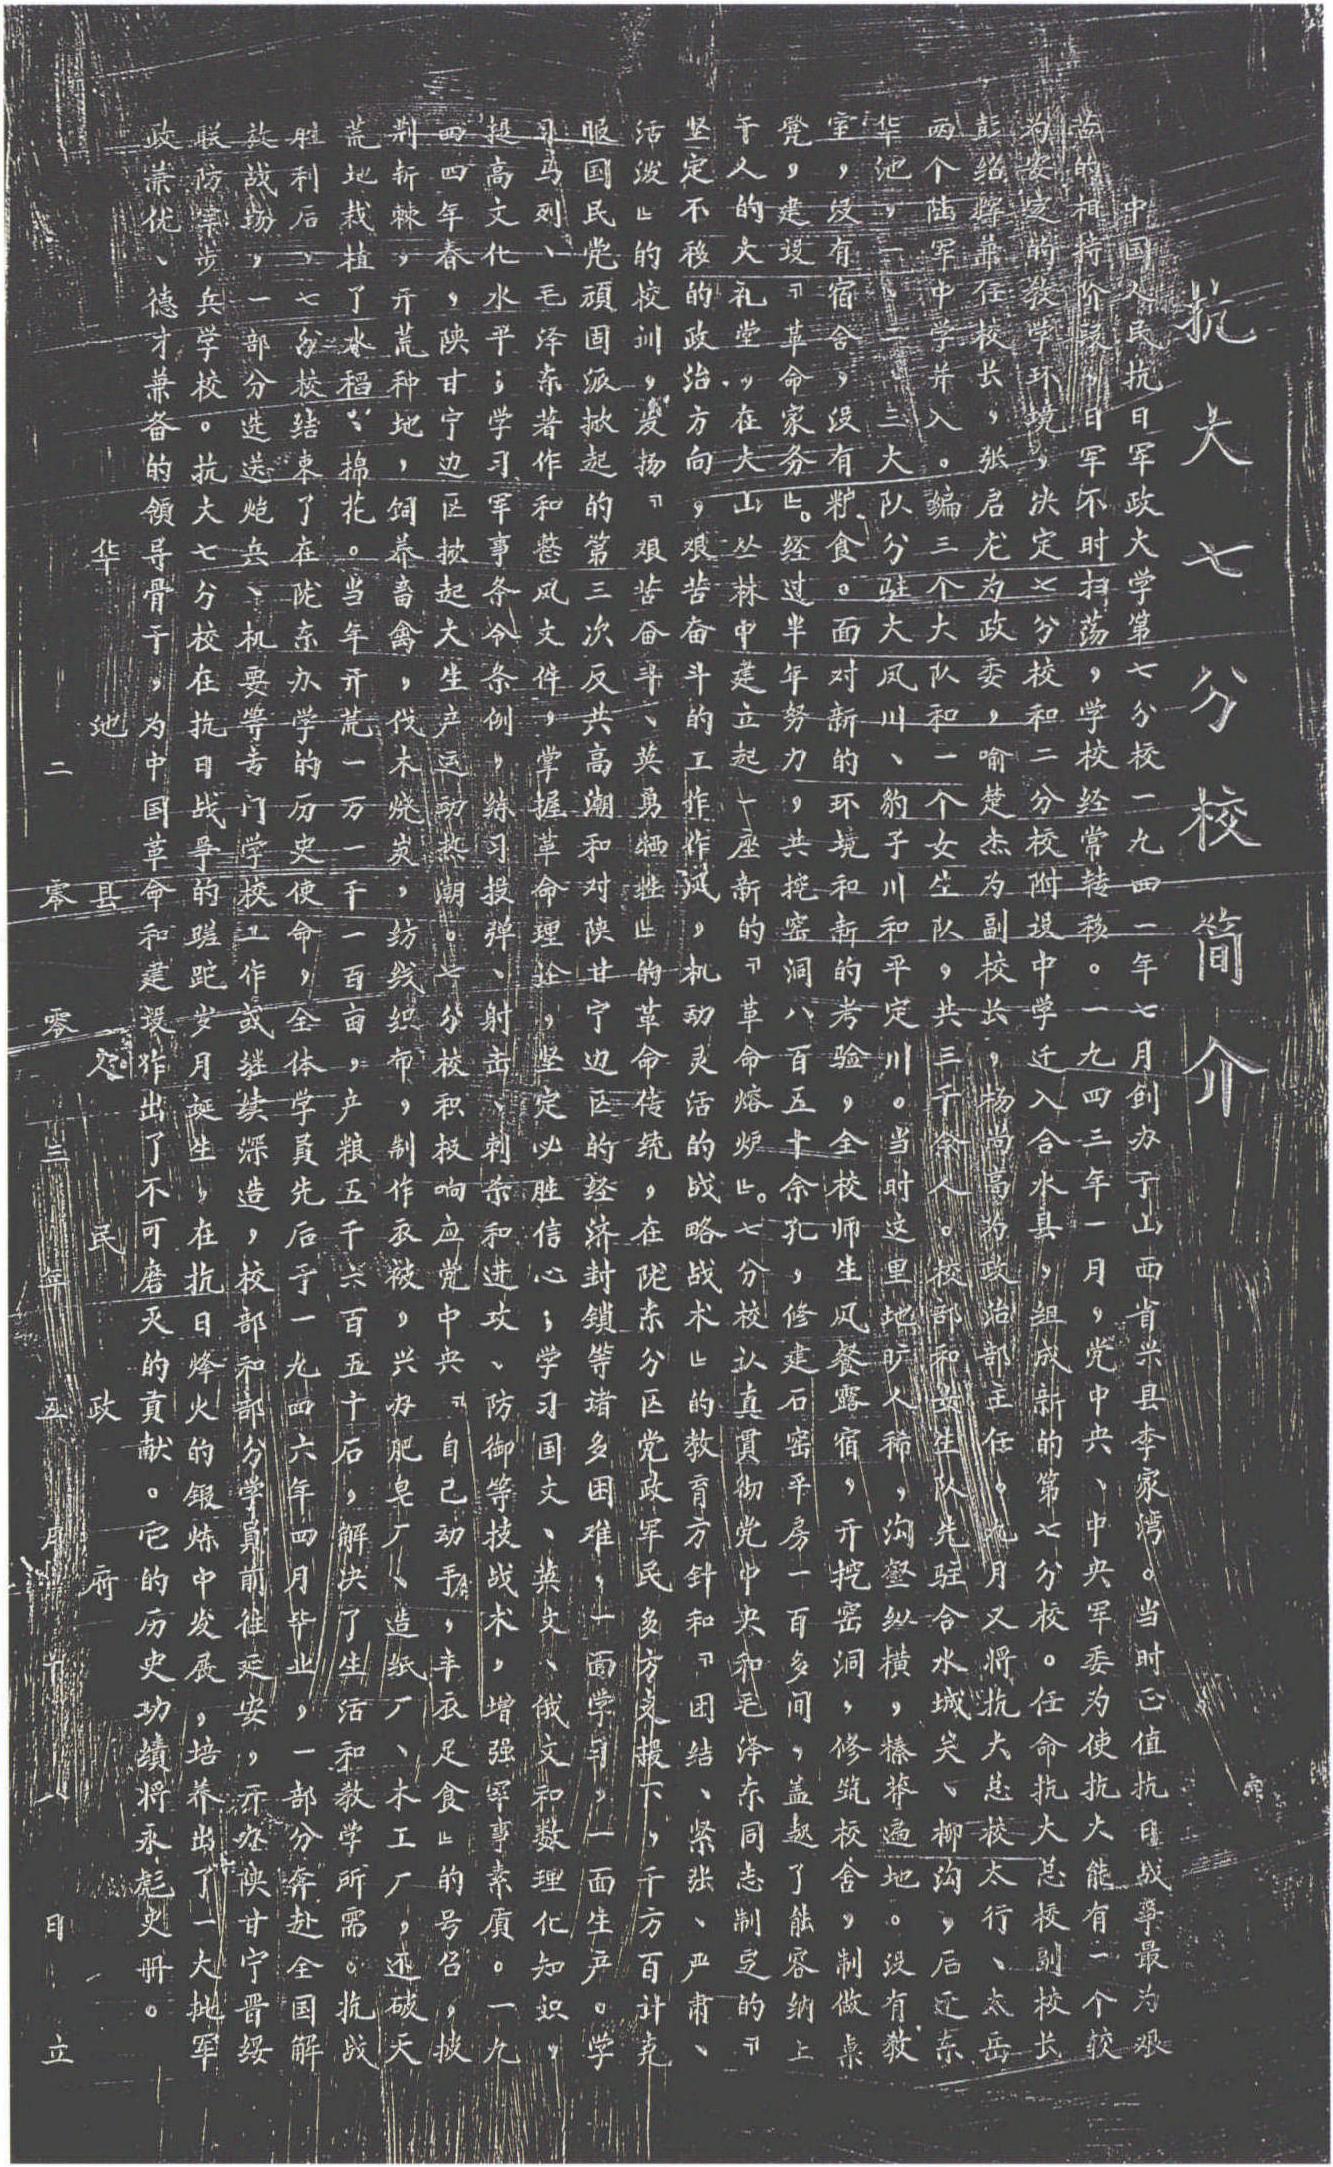 抗大七分校简介
中国人民抗日军政大学第七分校一九四一年七月创办于山西省兴县李家湾。当时正值抗日战争最为艰
苦的相持阶段，日军不时扫荡，学校经常转移。一九四三年一月，党中央、中央军委为使抗大能有一个较
为安定的教学环境，决定七分校和二分校附设中学迁入合水县，组成新的第七分校。任命抗大总校副校长
彭绍辉兼任校长，张启龙为政委，喻楚杰为副校长，杨尚高为政治部主任。九月又将抗大总校太行、太岳
两个陆军中学并入。编三个大队和一个女生队，共三千余人。校部和女生队先驻合水城关、柳沟，后迁东
华池，一、二、三大队分驻大凤川、豹子川和平定川。当时这里地旷人稀，沟壑纵横，榛莽遍地。没有教
室，没有宿舍，没有粮食。面对新的环境和新的考验，全校师生风餐露宿，开挖窑洞，修筑校舍，制做桌
凳，建设『革命家务』。经过半年努力，共挖窑洞八百五十余孔，修建石窑平房一百多间，盖起了能容纳上
千人的大礼堂，在大山丛林中建立起一座新的『革命熔炉』。七分校认真贯彻党中央和毛泽东同志制定的『
坚定不移的政治方向，艰苦奋斗的工作作风，机动灵活的战略战术』的教育方针和『团结、紧张、严肃、
活泼』的校训，发扬『艰苦奋斗、英勇牺牲』的革命传统，在陇东分区党政军民多方支援下，千方百计克
服国民党顽固派掀起的第三次反共高潮和对陕甘宁边区的经济封锁等诸多困难，一面学习，一面生产。学
习马列、毛泽东著作和整风文件，掌握革命理论，坚定必胜信心；学习国文、英文、俄文和数理化知识，
提高文化水平；学习军事条令条例，练习投弹、射击、刺杀和进攻、防御等技战术，增强军事素质。一九
四四年春，陕甘宁边区掀起大生产运动热潮。七分校积极响应党中央『自己动手，丰衣足食』的号召，披
荆斩棘，开荒种地，饲养畜禽，伐木烧炭，纺线织布，制作衣被，兴办肥皂厂、造纸厂、木工厂，还破天
荒地栽植了水稻、棉花。当年开荒一万一千一百亩，产粮五千六百五十石，解决了生活和教学所需。抗战
胜利后，七分校结束了在陇东办学的历史使命，全体学员先后于一九四六年四月毕业，一部分奔赴全国解
放战场，一部分选送炮兵、机要等专门学校工作或继续深造，校部和部分学员前往延安，开办陕甘宁晋绥
联防军步兵学校。抗大七分校在抗日战争的蹉跎岁月诞生，在抗日烽火的锻炼中发展，培养出了一大批军
政兼优、德才兼备的领导骨干，为中国革命和建设作出了不可磨灭的贡献。它的历史功绩将永彪史册。
华池县人民政府
二零零三年五月十八日立